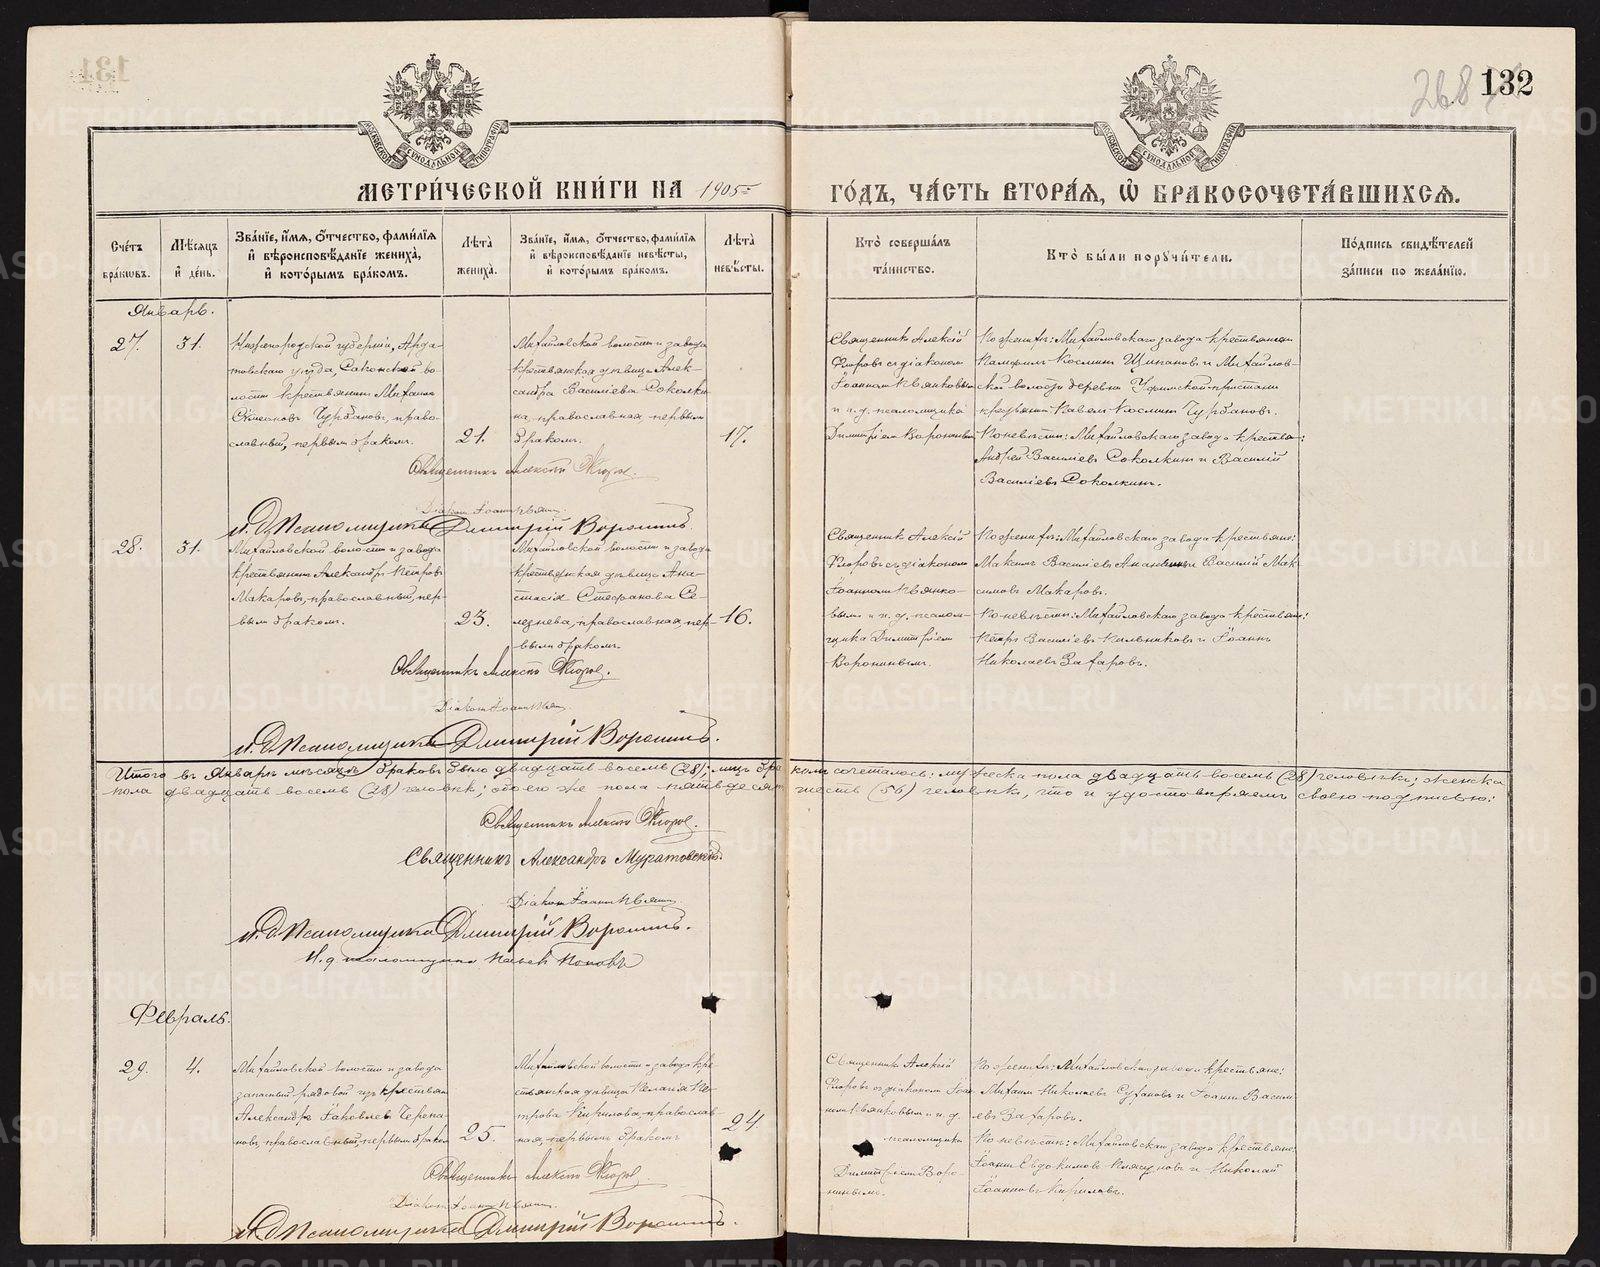 132
МЕТРИ́ЧЕСКОЙ КНИ́ГИ НА 1905 ГО́ДЪ, ЧА́СТЬ ВТОРА́Я, Ѡ БРАКОСОЧЕТА́ВШИХСЯ.
Сче́тъ бра́ковъ.
Мѣ́сяцъ и҆ де́нь.
Зва́нїе, и҆́мя, ѻ҆́тчество, фами́лїя и҆ вѣроисповѣ́данїе жениха̀, и҆ кото́рымъ бра́комъ.
Лѣ́та жениха̀.
Зва́нїе, и҆́мя, ѻ҆́тчество, фами́лїя и҆ вѣроисповѣ́данїе невѣ́сты, и҆ кото́рымъ бра́комъ.
Лѣ́та невѣ́сты.
Кто̀ соверша́лъ та́инство.
Кто̀ бы́ли поручи́тели.
По́дпись свидѣ́телей за́писи по жела́нїю.
Январь.
27. 31.
Нижегородской губернiи, Арда-
товскаго уѣзда, Саконской во-
лости крестьянинъ Михаилъ
Стѣпановъ Чурбановъ, право-
славный, первымъ бракомъ.
21.
Михайловской волости и завода
крестьянская дѣвица Алек-
сандра Васильева Соколки-
на, православная, первымъ
бракомъ.
17.
Священникъ Алексiй
Флоровъ съ дiакономъ
Iоанномъ Ивянковымъ
и и.д. псаломщика
Димитрiемъ Воронинымъ
По женихѣ: Михайловскаго завода крестьянинъ
Косминъ Щипановъ и Михайлов-
ской волости деревни Уфимской-пристани
Павелъ Косминъ Чурбановъ.
По невѣстѣ: Михайловскаго завода крестьяне:
Андрей Василiевъ Соколкинъ и Василiй
Василiевъ Соколкинъ.
Священникъ Алексiй Флоровъ.
Дiаконъ Iоаннъ
и. д. Псаломщика Дмитрiй Воронинъ.
28. 31.
Михайловской волости и завода
крестьянинъ Александръ Петровъ
Макаровъ, православный, пер-
вымъ бракомъ.
23.
Михайловской волости и завода
крестьянская дѣвица Ана-
стасiя Стефанова Се-
лезнева, православная, пер-
вымъ бракомъ.
16.
Священникъ Алексiй
Флоровъ съ дiакономъ
Iоанномъ Ивянко-
вымъ и и.д. псалом-
щика Димитрiемъ
Воронинымъ.
По женихѣ: Михайловскаго завода крестьяне:
Максимъ Василiевъ и Василiй Мак-
симовъ Макаровъ.
По невѣстѣ: Михайловскаго завода крестьяне:
Петръ Василiевъ Кальниковъ и Iоаннъ
Николаевъ Захаровъ.
Священникъ Алексiй Флоровъ.
Дiаконъ Iоаннъ
и. д. Псаломщика Дмитрiй Воронинъ.
Итого въ Январѣ мѣсяцѣ браковъ было двадцать восемь (28); лицъ бракомъ сочеталось: мужеска пола двадцать восемь (28) человѣкъ; женска
пола двадцать восемь (28) человѣкъ; обоего же пола пятьдесятъ шесть (56) человѣкъ, что и удостовѣряемъ своею подписью:
Священникъ Алексiй Флоровъ.
Священникъ Александръ Муратовскiй.
Дiаконъ Iоаннъ
и. д. Псаломщика Дмитрiй Воронинъ.
И. д. псаломщика Поповъ
Февраль.
29. 4.
Михайловской волости и завода
запасный рядовой изъ крестьянъ
Александръ Iаковлевъ Черепа-
новъ, православный, первымъ бракомъ
25.
Михайловской волости и завода кре-
стьянская дѣвица Пелагiя Пе-
трова Кирилова, православ-
ная, первымъ бракомъ
24.
Священникъ Алексiй
Флоровъ съ дiакономъ Iоан-
номъ Ивянковымъ и и.д.
псаломщика
Димитрiемъ Воро-
нинымъ.
По женихѣ: Михайловскаго завода крестьяне:
Михаилъ Николаевъ Сухановъ и Iоаннъ Васили-
евъ Захаровъ.
По невѣстѣ: Михайловскаго завода крестьяне:
Iоаннъ Евдокимовъ и Николай
Iоанновъ Кириловъ.
Священникъ Алексiй Флоровъ.
Дiаконъ Iоаннъ
и. д. Псаломщика Дмитрiй Воронинъ.
METRIKI.GASO-URAL.RU